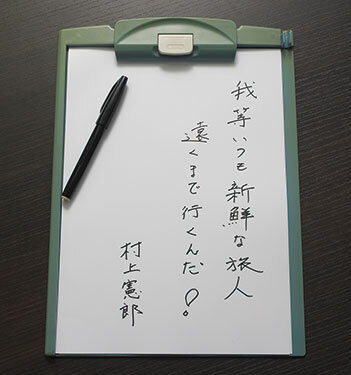 我等いつも新鮮な旅人
遠くまで行くんだ!
村上憲郎